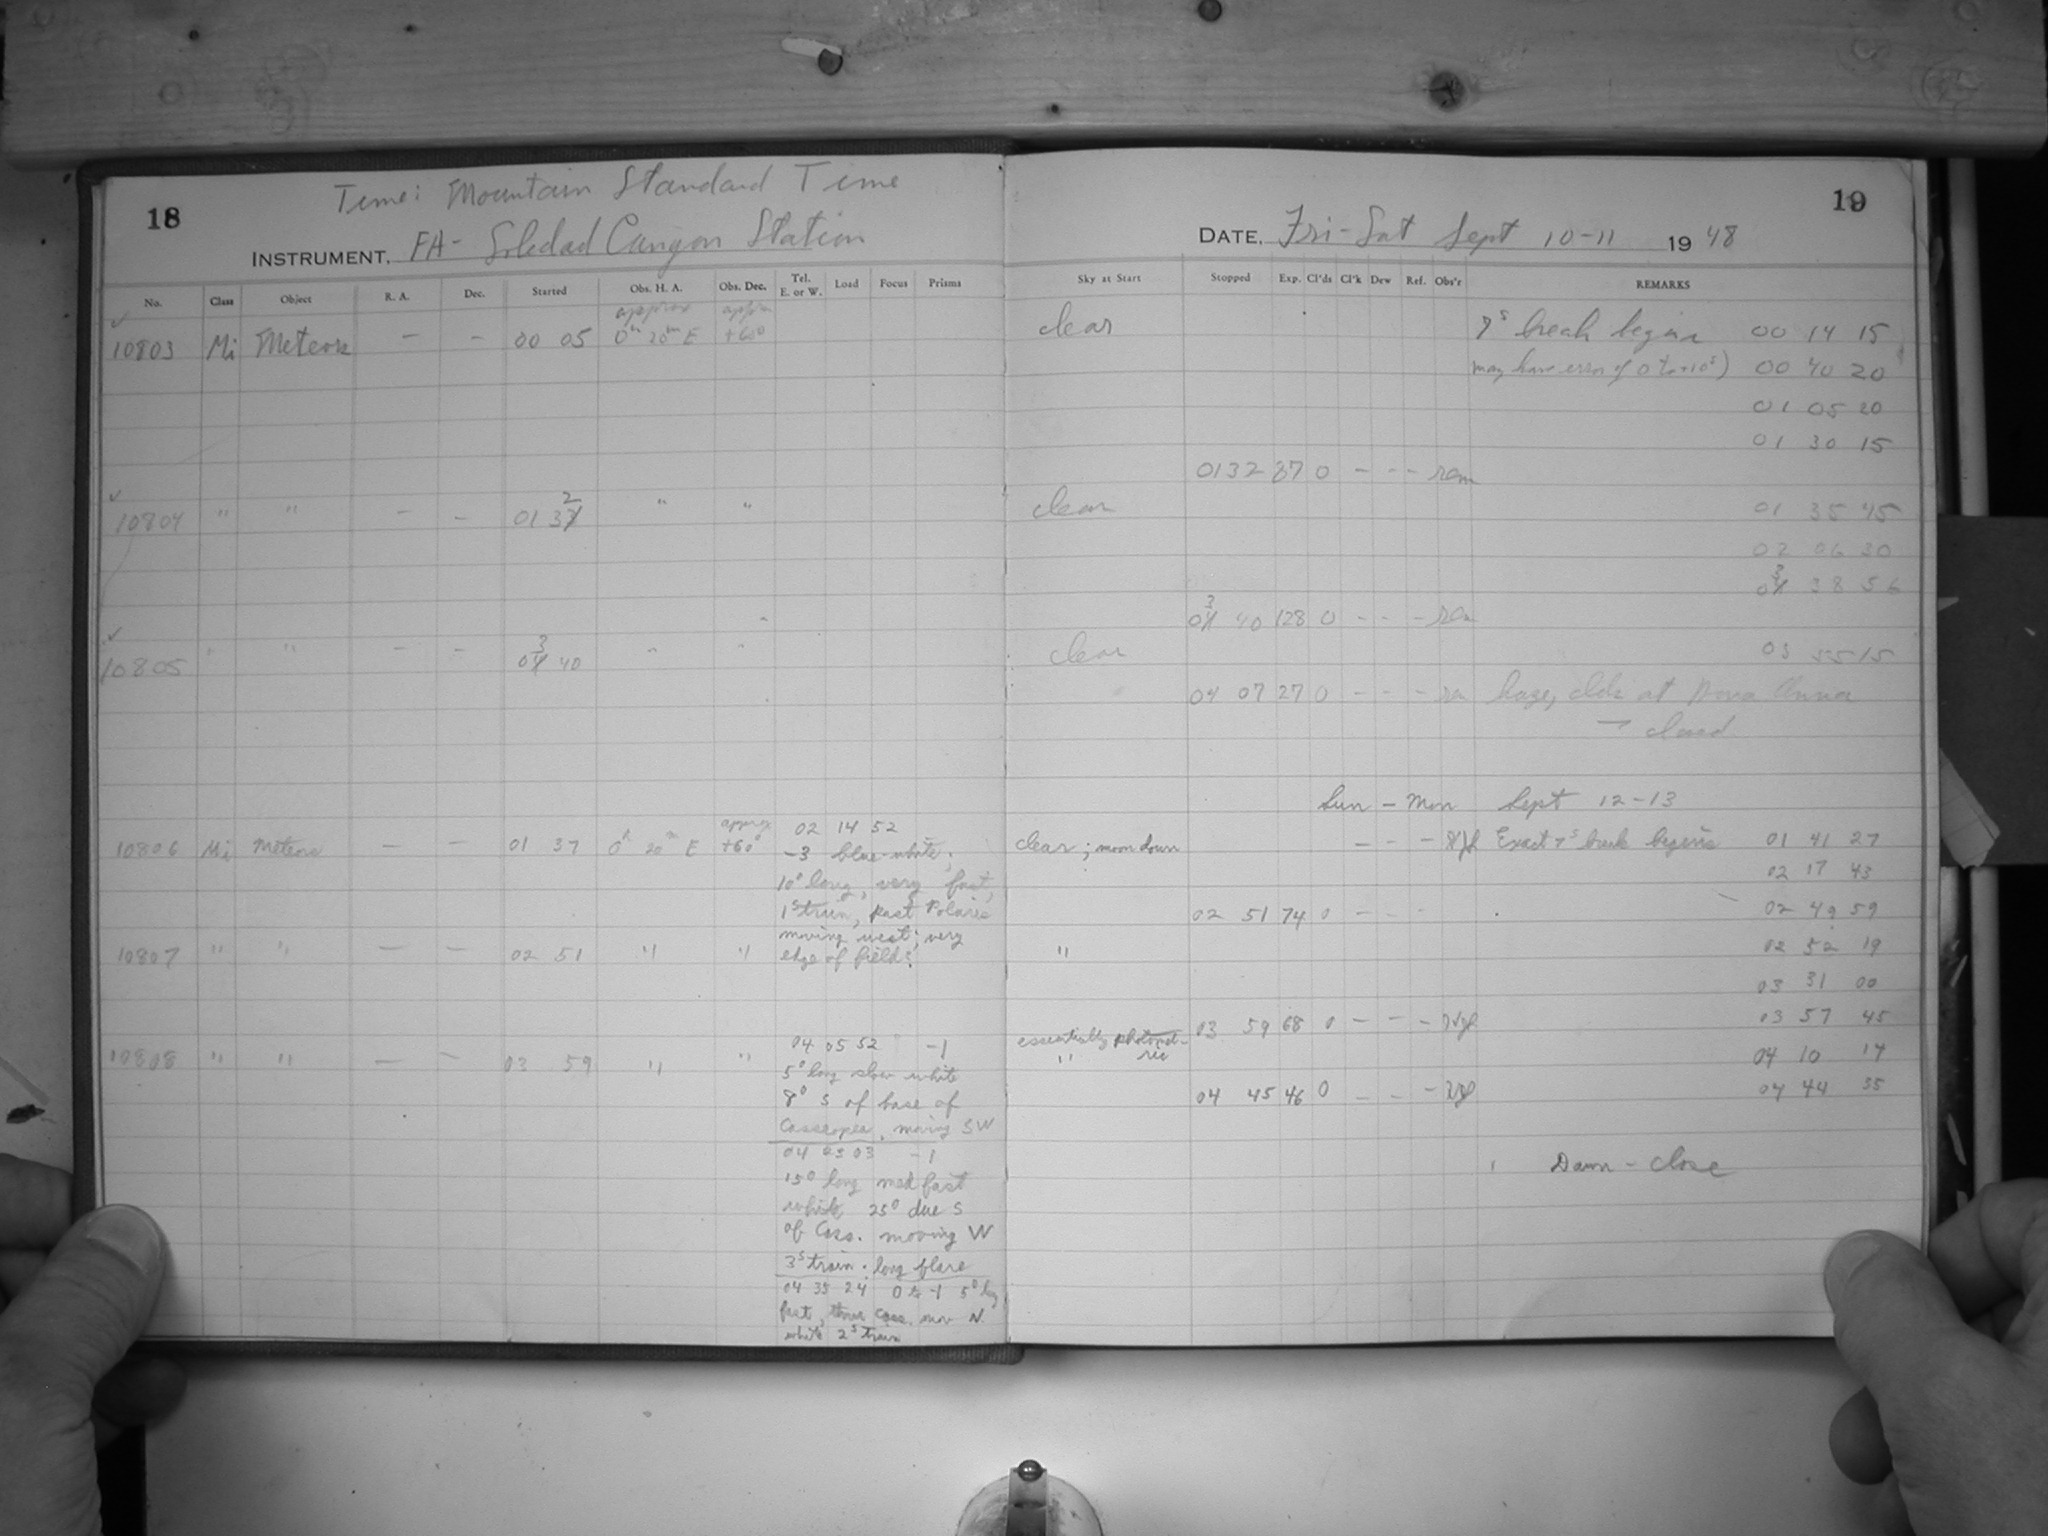 18
Time: Mountain Standard Time
INSTRUMENT. FA- Soledad Canyon Station
No. Class Object R. A. Dec. Started Obs. H. A. Obs. Dec. Tel. E. or W. Load Focus Prisms
approx approx
✓
10803 Mi Meteors — — 00 05 0ʰ 20ᵐ E +60°
✓ 2
10804 " " — — 01 37 " "
✓ 3
10805 " " — — 04 40 " "
approx 02 14 52
10806 Mi Meteors — — 01 37 0ʰ 20ᵐ E +60° -3 blue-white;
10° long, very fast,
1ˢ train, past Polaris
moving west; very
10807 " " — — 02 51 " " edge of field?
04 05 52 -1
10808 " " — — 03 59 " " 5° long slow white
8° S of base of
Casseopea, moving SW
04 03 -1
15° long med fast
white 25° due S
of Cass. moving W
3ˢ train. long flare
04 35 24 0 to -1 5° long
fast, Cass. mov N
white 2ˢ train
19
DATE. Fri-Sat Sept 10-11 1948
Sky at Start Stopped Exp. Cl'ds Cl'k Dew Ref. Obs'r REMARKS
clear 7ˢ break begins 00 14 15
may have error of 0 to +10ˢ) 00 40 20
01 05 20
01 30 15
0132 87 0 - - - rem
clear 01 35 45
02 06 30
3
04 38 56
3
04 40 128 0 - - - rem
clear 03 55 15
04 07 27 0 - - - haze, clds at Dona Anna
→ closed
Sun - Mon Sept 12-13
clear; moon down - - - Exact 7ˢ break begins 01 41 27
02 17 43
02 51 74 0 - - - 02 49 59
" 02 52 19
03 31 00
03 59 68 0 - - - 03 57 45
essentially photomet-
" ric 04 10 14
04 45 46 0 - - - 04 44 35
Dawn - close